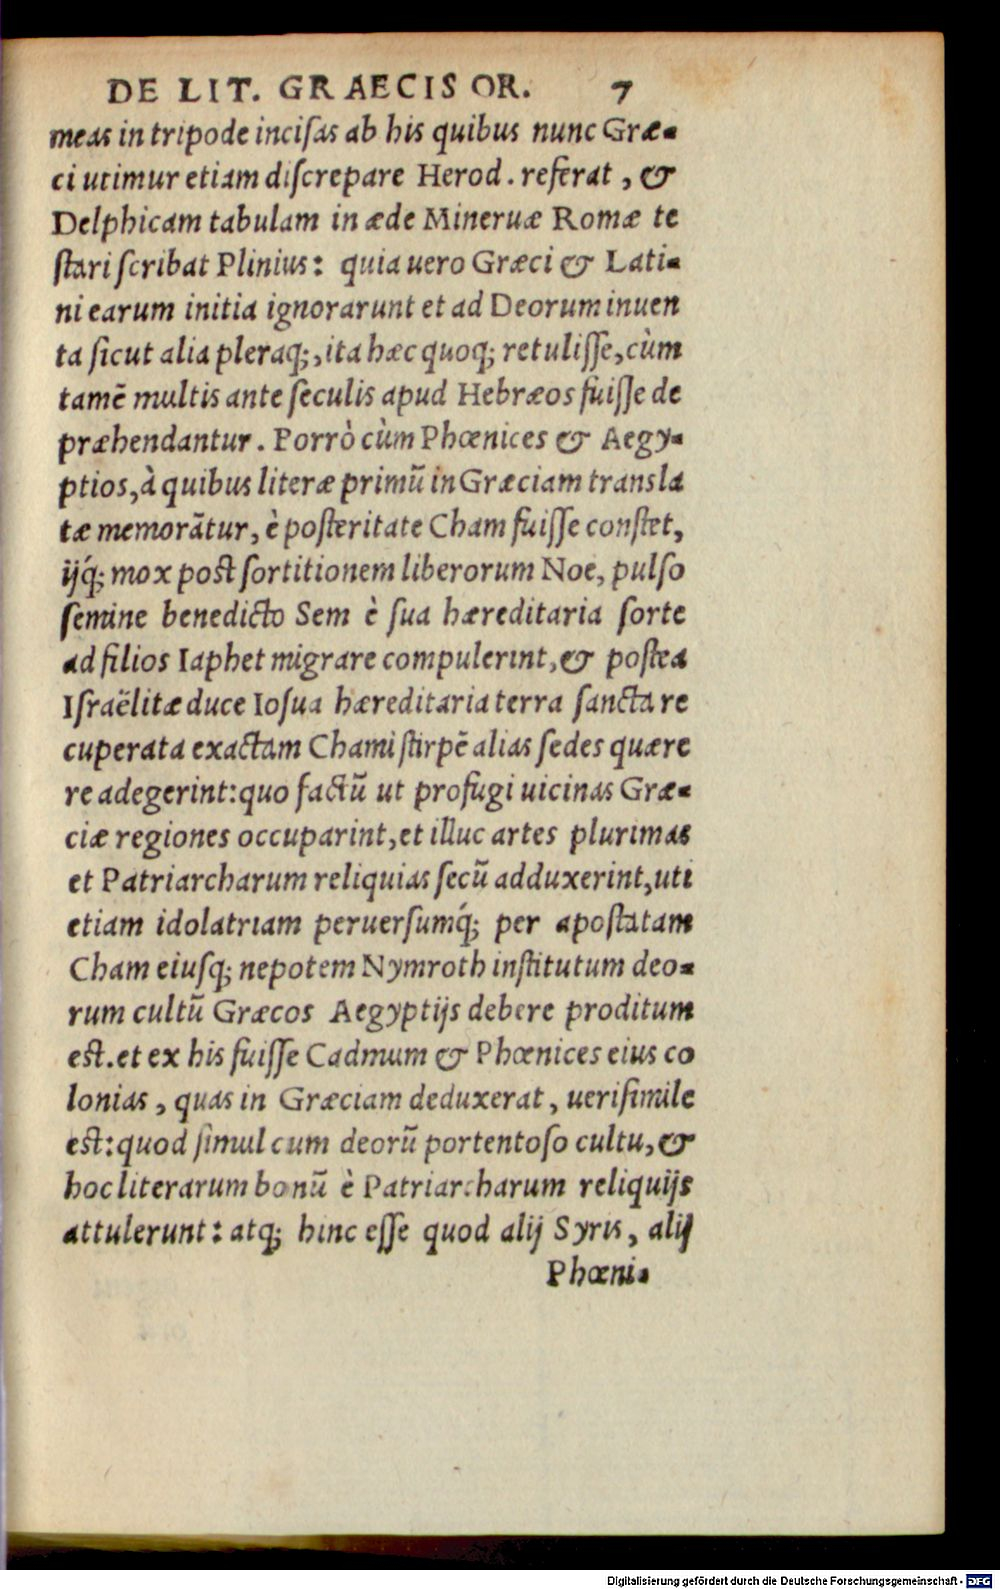 DE LIT. GRAECIS OR. 7
meas in tripode incisas ab his quibus nunc Græ-
ci utimur etiam discrepare Herod. referat, &
Delphicam tabulam in æde Mineruæ Romæ te
stari scribat Plinius: quia uero Græci & Lati-
ni earum initia ignorarunt et ad Deorum inuen
ta sicut alia pleraq;, ita hæc quoq; retulisse, cùm
tamē multis ante seculis apud Hebræos fuisse de
præhendantur. Porrò cùm Phœnices & Aegy-
ptios, à quibus literæ primū in Græciam transla
tæ memorātur, è posteritate Cham fuisse constet,
ijq́; mox post sortitionem liberorum Noe, pulso
semine benedicto Sem è sua hæreditaria sorte
ad filios Iaphet migrare compulerint, & postea
Israëlitæ duce Iosua hæreditaria terra sancta re
cuperata exactam Chami stirpē alias sedes quære
re adegerint: quo factū ut profugi uicinas Græ-
ciæ regiones occuparint, et illuc artes plurimas
et Patriarcharum reliquias secū adduxerint, uti
etiam idolatriam peruersumq́; per apostatam
Cham eiusq; nepotem Nymroth institutum deo-
rum cultū Græcos Aegyptijs debere proditum
est. et ex his fuisse Cadmum & Phœnices eius co
lonias, quas in Græciam deduxerat, uerisimile
est: quod simul cum deorū portentoso cultu, &
hoc literarum bonū è Patriarcharum reliquijs
attulerunt: atq; hinc esse quod alij Syris, alij
Phœni-
Digitalisierung gefördert durch die Deutsche Forschungsgemeinschaft - DFG